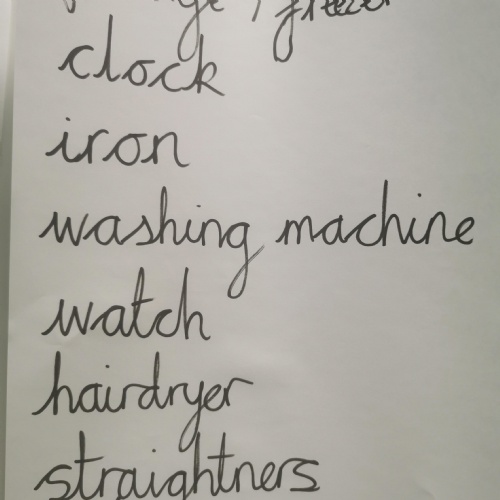 / freezer
clock
iron
washing machine
watch
hairdryer
straightners